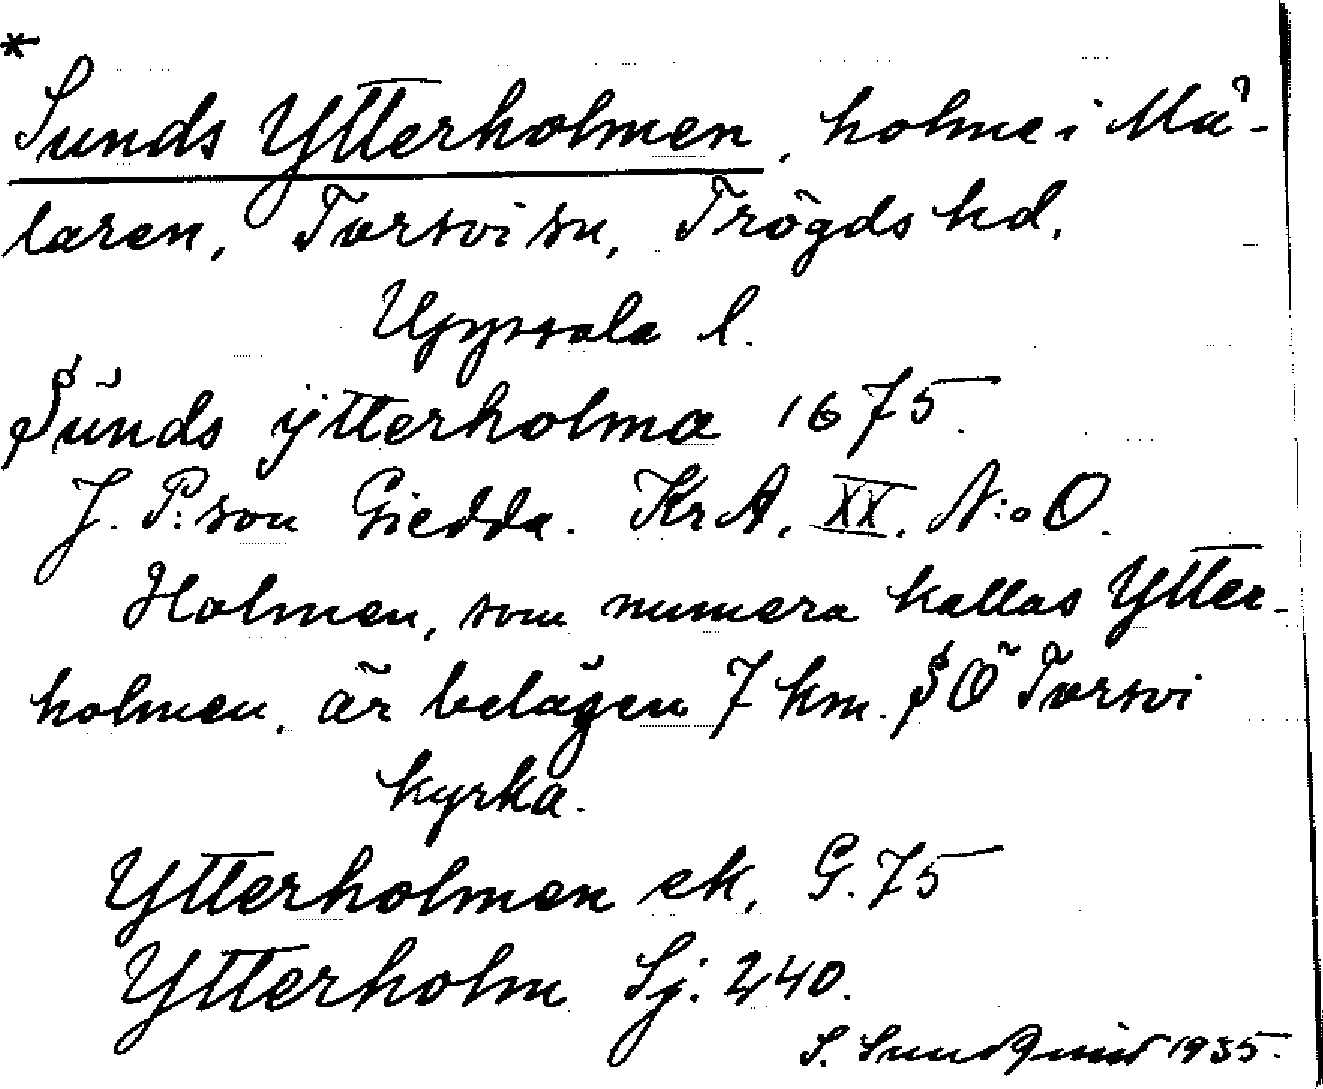 *
Sunds Ytterholmen, holme i Mä-
laren, Torsvi sn, Trögds hd,
Uppsala l.
Sŭnds ÿtterholma 1675.
J. P:son Giedda. KrA. XX. N:o O.
Holmen, som numera kallas Ytter-
holmen, är belägen 7 km. SÖ Torsvi
kyrka.
Ytterholmen ek. G. 75
Ytterholm Sj. 240.
S. Sundqvist 1935.